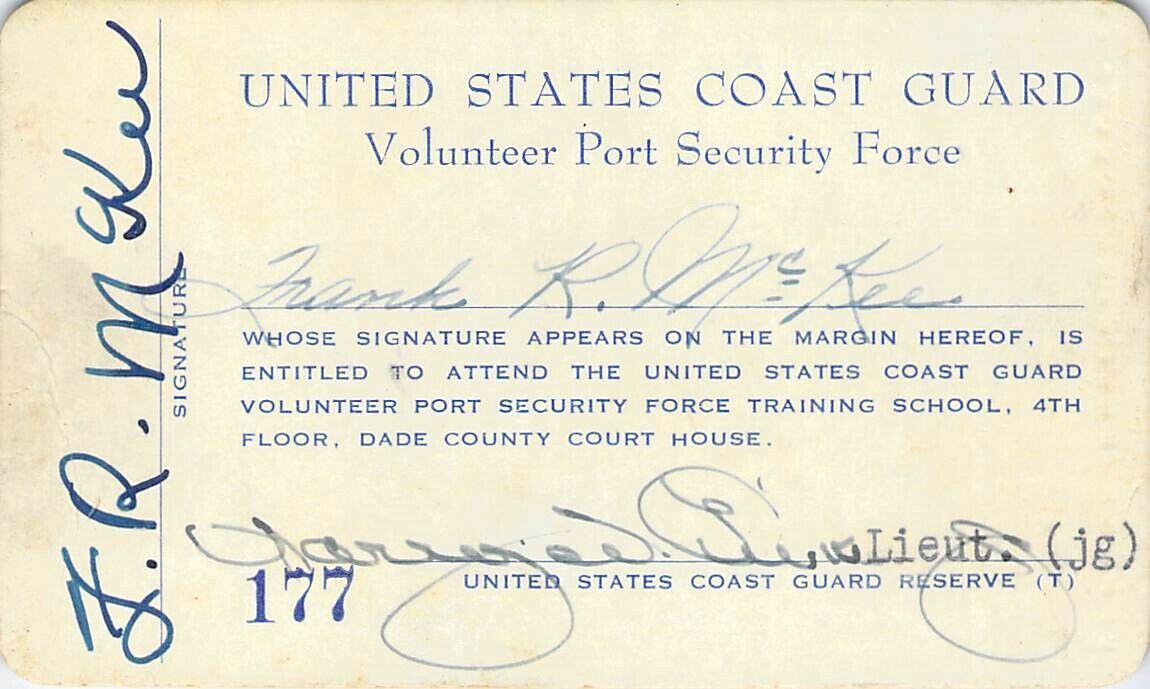 UNITED STATES COAST GUARD
Volunteer Port Security Force
Frank R. Mc Kee
WHOSE SIGNATURE APPEARS ON THE MARGIN HEREOF, IS
ENTITLED TO ATTEND THE UNITED STATES COAST GUARD
VOLUNTEER PORT SECURITY FORCE TRAINING SCHOOL, 4TH
FLOOR, DADE COUNTY COURT HOUSE.
Lieut. (jg)
177
UNITED STATES COAST GUARD RESERVE (T)
SIGNATURE
F. R. McKee